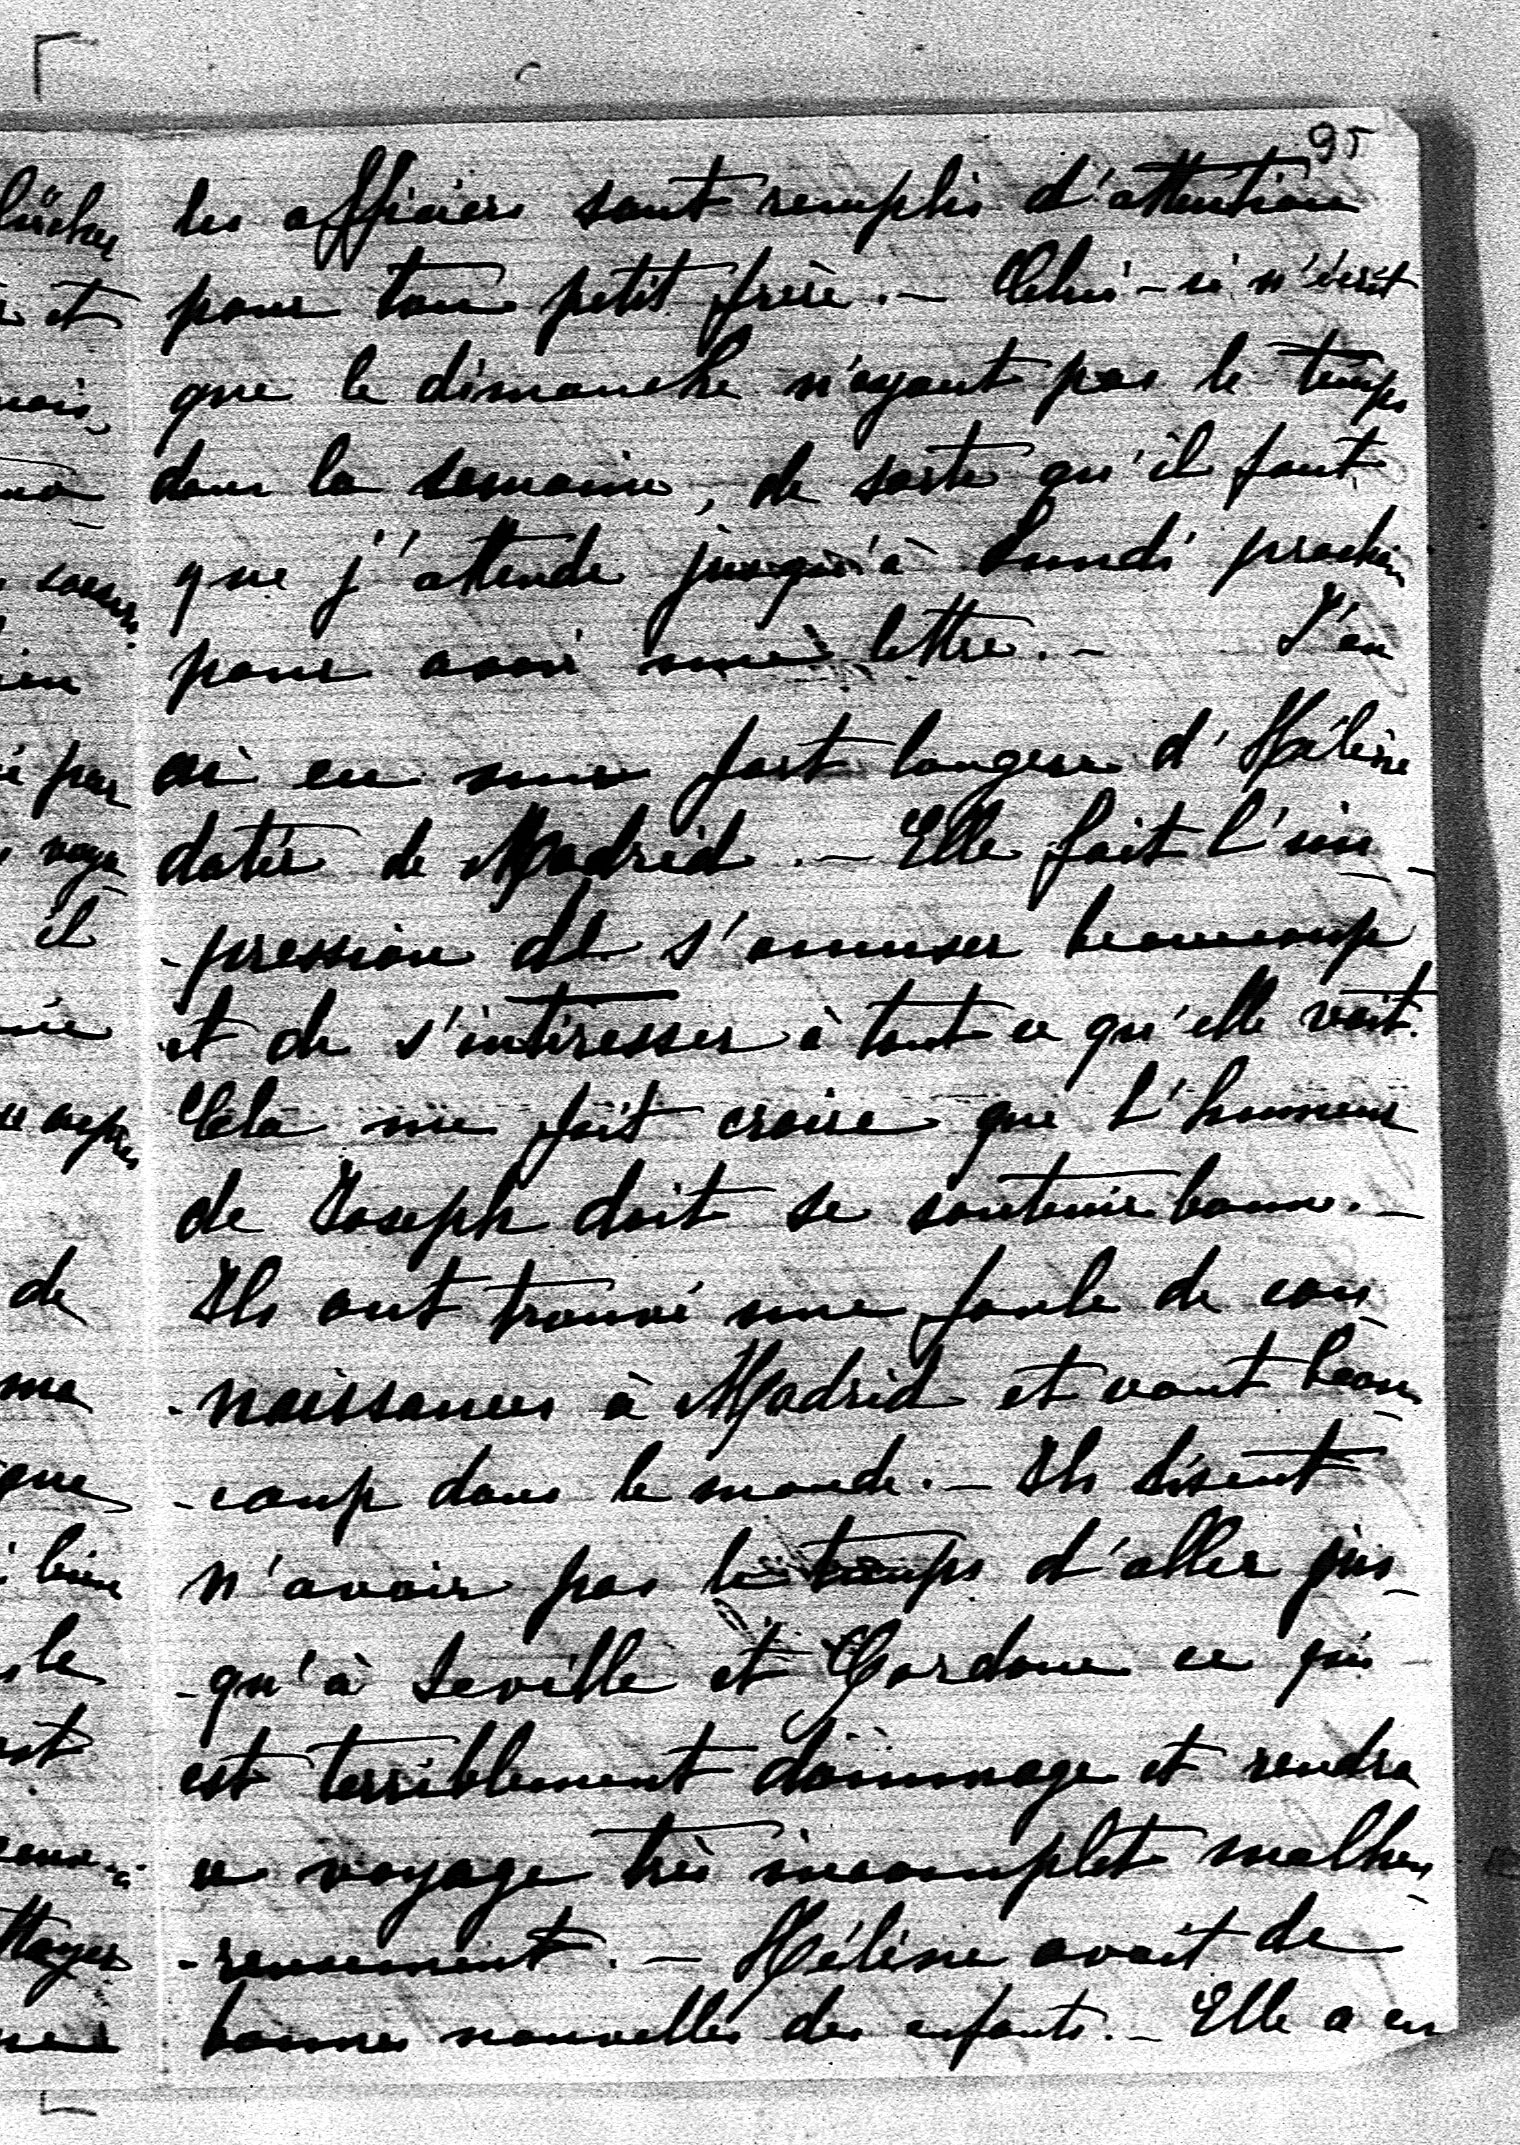 95
les officiers sont remplis d'attention
pour ton petit frère. — Celui-ci n'écrit
que le dimanche n'ayant pas le temps
dans la semaine, de sorte qu'il faut
que j'attende jusqu'à Lundi prochain
pour avoir une lettre. — J'en
ai eu une fort longue d'Hélène
datée de Madrid. — Elle fait l'im-
-pression de s'amuser beaucoup
et de s'intéresser à tout ce qu'elle voit.
Cela me fait croire que l'humeur
de Joseph doit se soutenir bonne. —
Ils ont trouvé une foule de con
-naissances à Madrid et vont beau-
-coup dans le monde. — Ils disent
n'avoir pas le temps d'aller jus-
-qu'à Seville et Cordoue ce qui
est terriblement dommage et rendra
ce voyage très incomplet malheu-
-reusement. — Hélène avait de
bonnes nouvelles des enfants. — Elle a eu